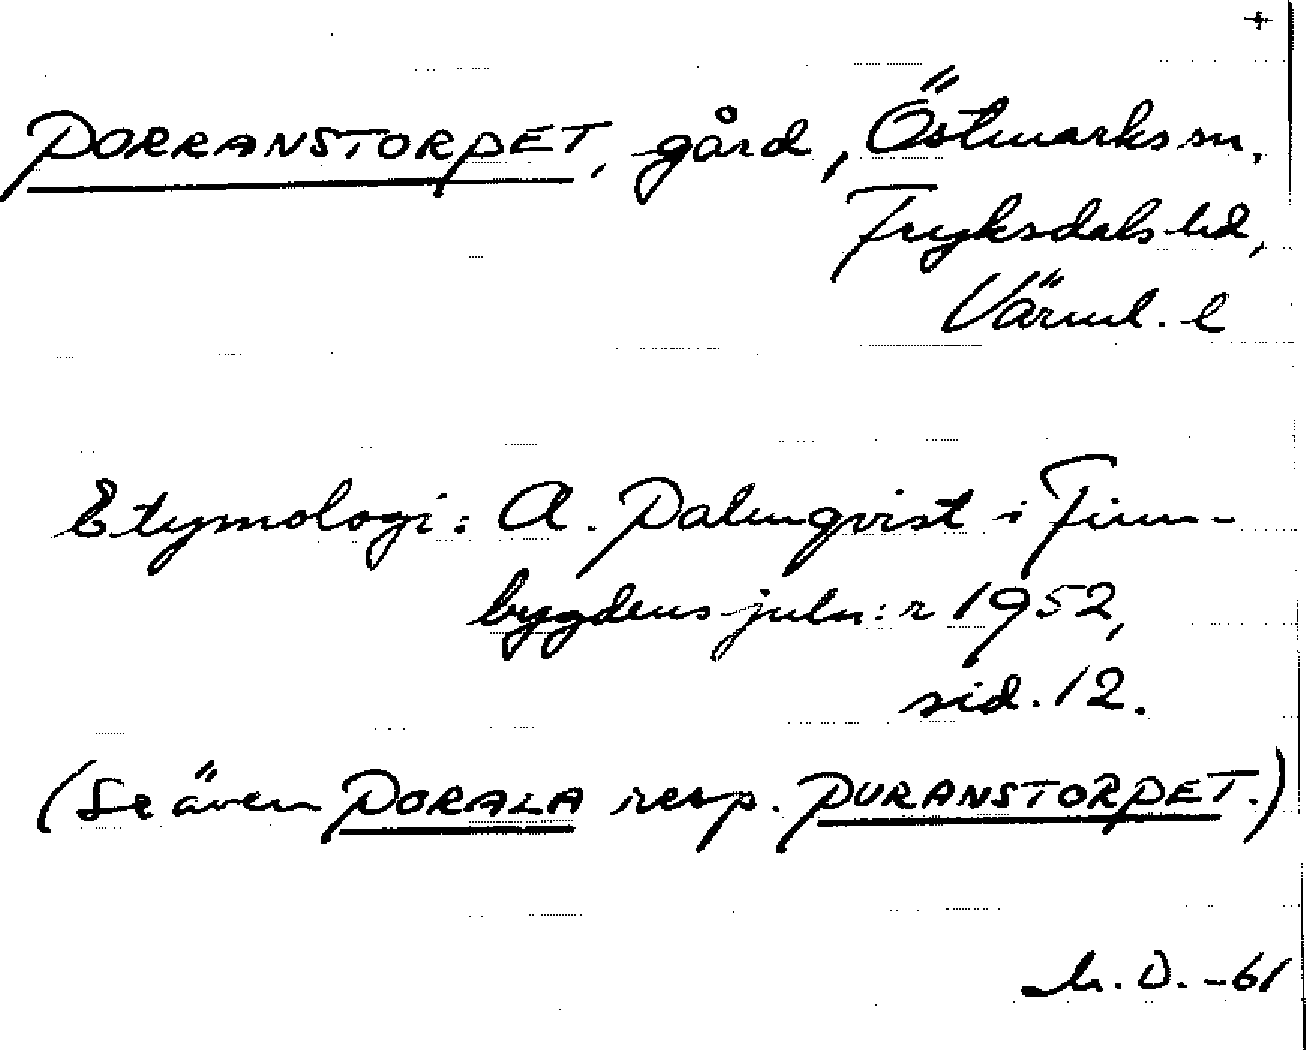 +
PORRANSTORPET, gård, Östmarks sn,
Fryksdals hd,
Värml. l
Etymologi: A. Palmqvist i Finn-
bygdens juln:r 1952,
sid. 12.
(Se även PORALA resp. PURANSTORPET.)
M. O. -61